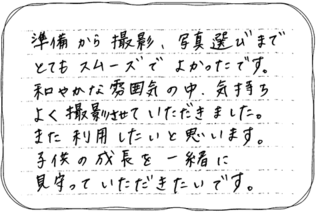 準備から撮影、写真選びまで
とてもスムーズでよかったです。
和やかな雰囲気の中、気持ち
よく撮影させていただきました。
また利用したいと思います。
子供の成長を一緒に
見守っていただきたいです。